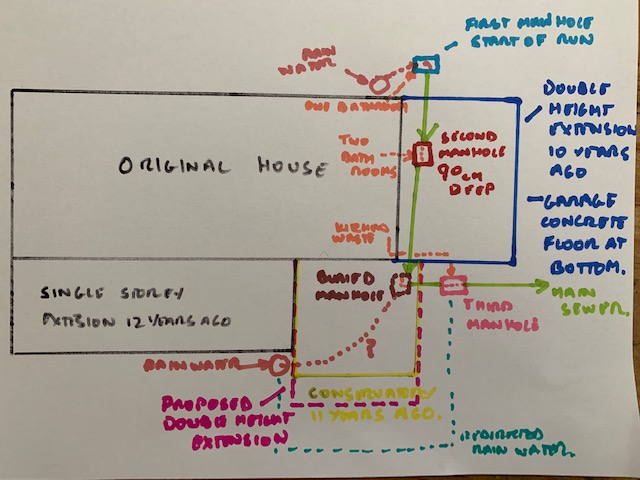 FIRST MANHOLE
START OF RUN
RAIN
WATER
ONE BATHROOM
DOUBLE
HEIGHT
EXTENSION
10 YEARS
AGO
ORIGINAL HOUSE
TWO
BATH
ROOMS
SECOND
MANHOLE
90cm
DEEP
GARAGE
CONCRETE
FLOOR AT
BOTTOM.
KITCHEN
WASTE
BURIED
MANHOLE
SINGLE STOREY
EXTISION 12 YEARS AGO
THIRD
MANHOLE
MAIN
SEWER.
?
RAINWATER
PROPOSED
DOUBLE HEIGHT
EXTENSION
CONSERVATORY
11 YEARS AGO.
REDIRECTED
RAIN WATER.